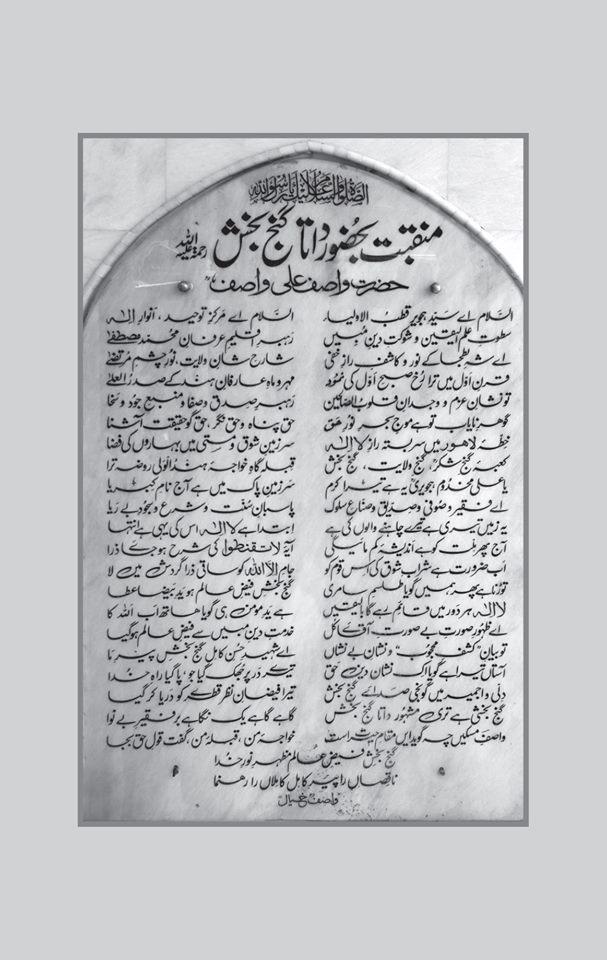 الصلوٰۃ والسلام علیک یا رسول اللہ
منقبت بحضور داتا گنج بخش رحمۃ اللہ علیہ
حضرت واصف علی واصفؒ
السلام اے سیّدِ ہجویر قطب الاولیاء السلام اے مرکزِ توحید، انوارِ الٰہ
سطوتِ علم الیقین و شوکتِ دینِ مبیں رہبرِ قلیمِ عرفانِ محمد مصطفٰیؐ
اے شہِ بطحا کے نور و کاشفِ رازِ خفی شارحِ شانِ ولایت، نورِ چشمِ مرتضٰیؑ
قرنِ اوّل میں ترا رُخ صبحِ اوّل کی نمود مہر و ماہِ عارفانِ ہند کے صدر العلیٰ
تو نشانِ عزم و وجدانِ قلوب الصالحین رہبرِ صدق و صفا و منبعِ جود و سخا
گوہرِ نایاب تو ہے موجِ بحرِ نورِ حق حق پناہ و حق نگر، حق گو حقیقت آشنا
خطّۂ لاہور میں سربستہ رازِ لا الٰہ سرزمینِ شوق و مستی میں بہاروں کی فضا
کعبۂ گنج شکرؒ، گنجِ ولایت، گنج بخش قبلہ گاہِ خواجۂ ہند الولی روضہ ترا
یا علی مخدوم ہجویریؒ یہ ہے تیرا کرم سرزمینِ پاک میں ہے آج نامِ کبریا
اے فقیر و صوفی و صدیق و صناعِ سلوک پاسبانِ سنّت و شرع و بیخود بے ریا
یہ زمیں تیری ہے تیرے چاہنے والوں کی ہے ابتدا ہے لا الٰہ اس کی یہی ہے انتہا
آج پھر ملّت کو ہے اندیشۂ کم مائیگی آیۂ لا تقنطوا کی شرح ہو جائے ذرا
اب ضرورت ہے شرابِ شوق کی اس قوم کو جامِ الّا اللہ کو ساقی ذرا گردش میں لا
توڑنا ہے پھر ہمیں گویا طلسمِ سامری گنج بخشِ فیضِ عالم ہو یدِ بیضا عطا
لا الٰہ ہر دور میں قائم رہے گا بالیقیں ہے یدِ مومن ہی گویا ہاتھ اب اللہ کا
اے ظہورِ صورتِ بے صورت آقائے کل خدمتِ دینِ مبیں سے فیضِ عالم ہو گیا
تو بیانِ "کشفِ محجوب" و نشانِ بے نشاں اے شہیدِ حسنِ کامل گنج بخش پیرِ ما
آستاں تیرا ہے گویا اک نشانِ دینِ حق تیرے در پر جھک گیا جو، پا گیا راہِ خدا
دلّی و اجمیر میں گونجی صدائے گنج بخش تیرا فیضانِ نظر قطرے کو دریا کر گیا
گنج بخشی ہے تری مشہور داتا گنج بخش گاہے گاہے یک نگاہے بر فقیرِ بے نوا
واصفِ مسکیں چہ گوید ایں مقامِ حیرت است خواجۂ من، قبلۂ من، گفت قولِ حق بجا
گنج بخش فیضِ عالم مظہرِ نورِ خدا
ناقصاں را پیرِ کامل کاملاں را رہنما
واصفؒ خیال